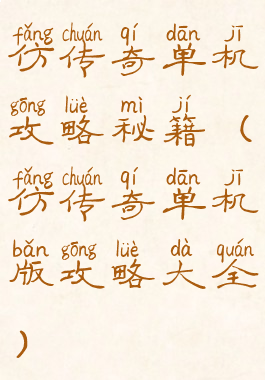 fǎng chuán qí dān jī
仿传奇单机
gōng lüè mì jí
攻略秘籍（
fǎng chuán qí dān jī
仿传奇单机
bǎn gōng lüè dà quán
版攻略大全
）